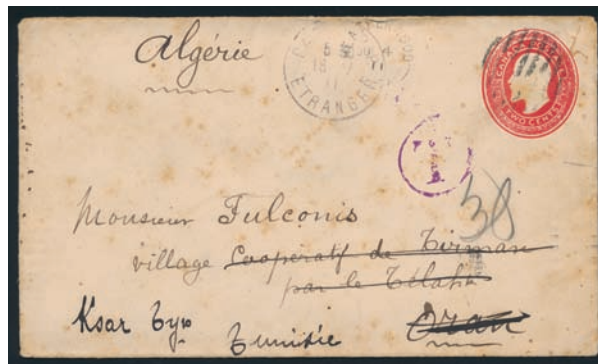 Algérie
ETRANGER
CANADA
TWO CENTS
T
38
Monsieur Fulconis
village Coopératif de Tirman
par le Télagh
Ksar Tyr
Tunisie Oran